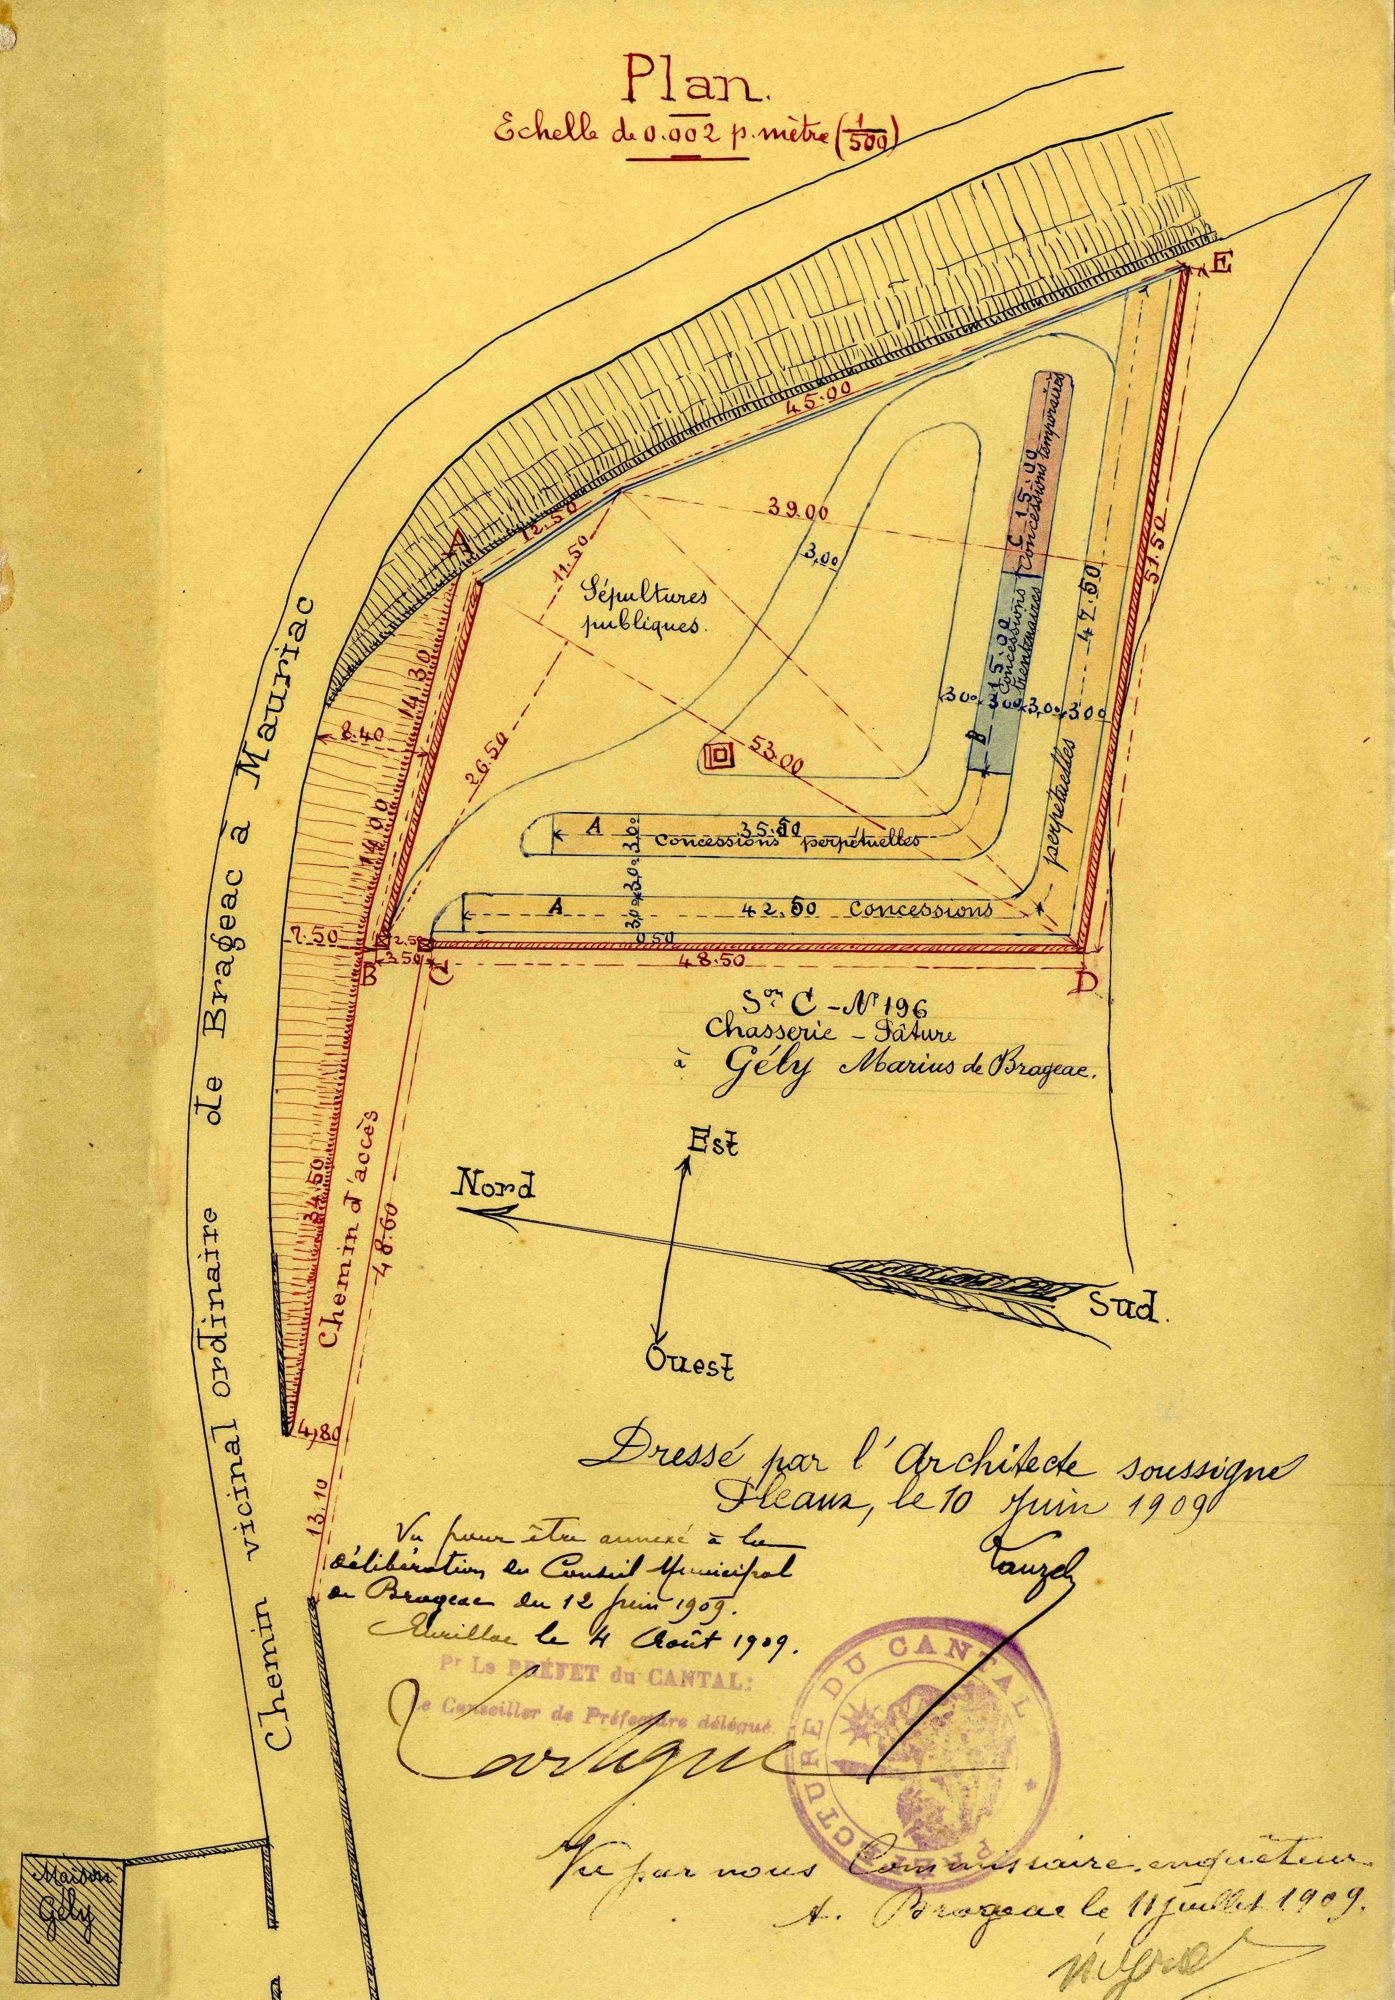 Plan.
Echelle de 0.002 p. mètre (1/500)
E
45.00
A
12.50
11.50
39.00
3,00
Sépultures
publiques.
C 15.00
Concessions temporaires
15.00
Concessions
trentenaires
B
47.50
51.50
14.30
8.40
26.50
53.00
3,00 3,00 3,00 3,00
perpétuelles
14.00
A 35.50
Concessions perpétuelles
3,00
3,00
3,00
A 42.50 Concessions
0,50
7.50
2.50
3.50
48.50
B
C
D
Son C - No 196
Chasserie - Pâture
à Gély Marius de Brageac.
Est
Nord
Sud.
Ouest
34.50
Chemin d'accès
48.60
4,80
13.10
Chemin vicinal ordinaire de Brageac à Mauriac
Dressé par l'Architecte soussigné
Pleaux, le 10 Juin 1909
Vu pour être annexé à la
délibération du Conseil Municipal
de Brageac du 12 juin 1909.
Aurillac le 4 Août 1909.
Pr Le PRÉFET du CANTAL:
Le Conseiller de Préfecture délégué
PRÉFECTURE DU CANTAL
Vu par nous Commissaire-enquêteur.
A. Brageac le 11 juillet 1909.
Maison
Gély